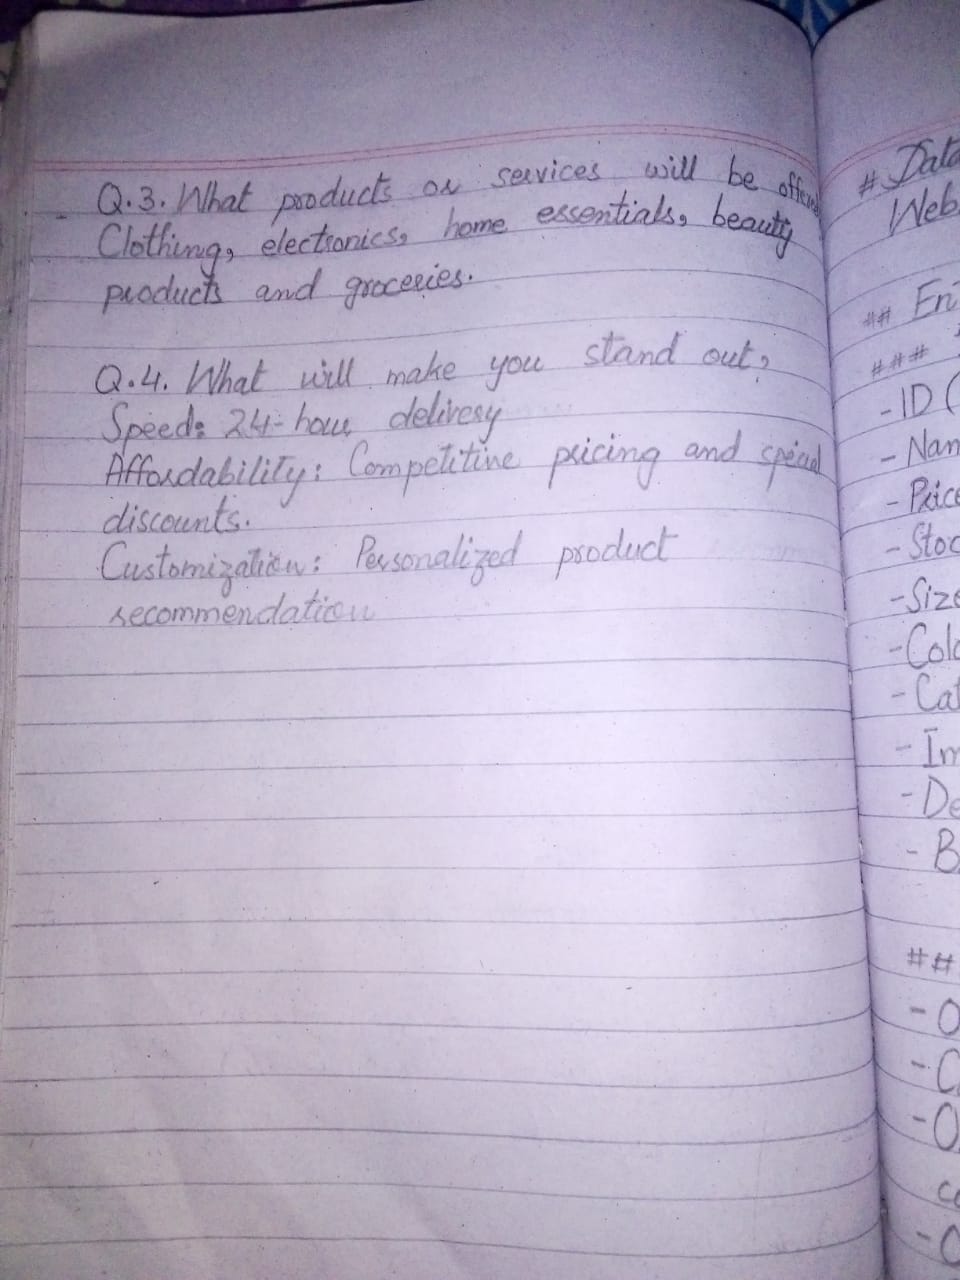 Q.3. What products or services will be offered
Clothing, electronics, home essentials, beauty
products and groceries.
Q.4. What will make you stand out?
Speed: 24-hour delivery
Affordability: Competitive pricing and special
discounts.
Customization: Personalized product
recommendation
# Data
Web
## En
###
- ID (
- Nam
- Price
- Stoc
- Size
- Colo
- Cat
- Im
- De
- B
##
- O
- C
- O
co
- C